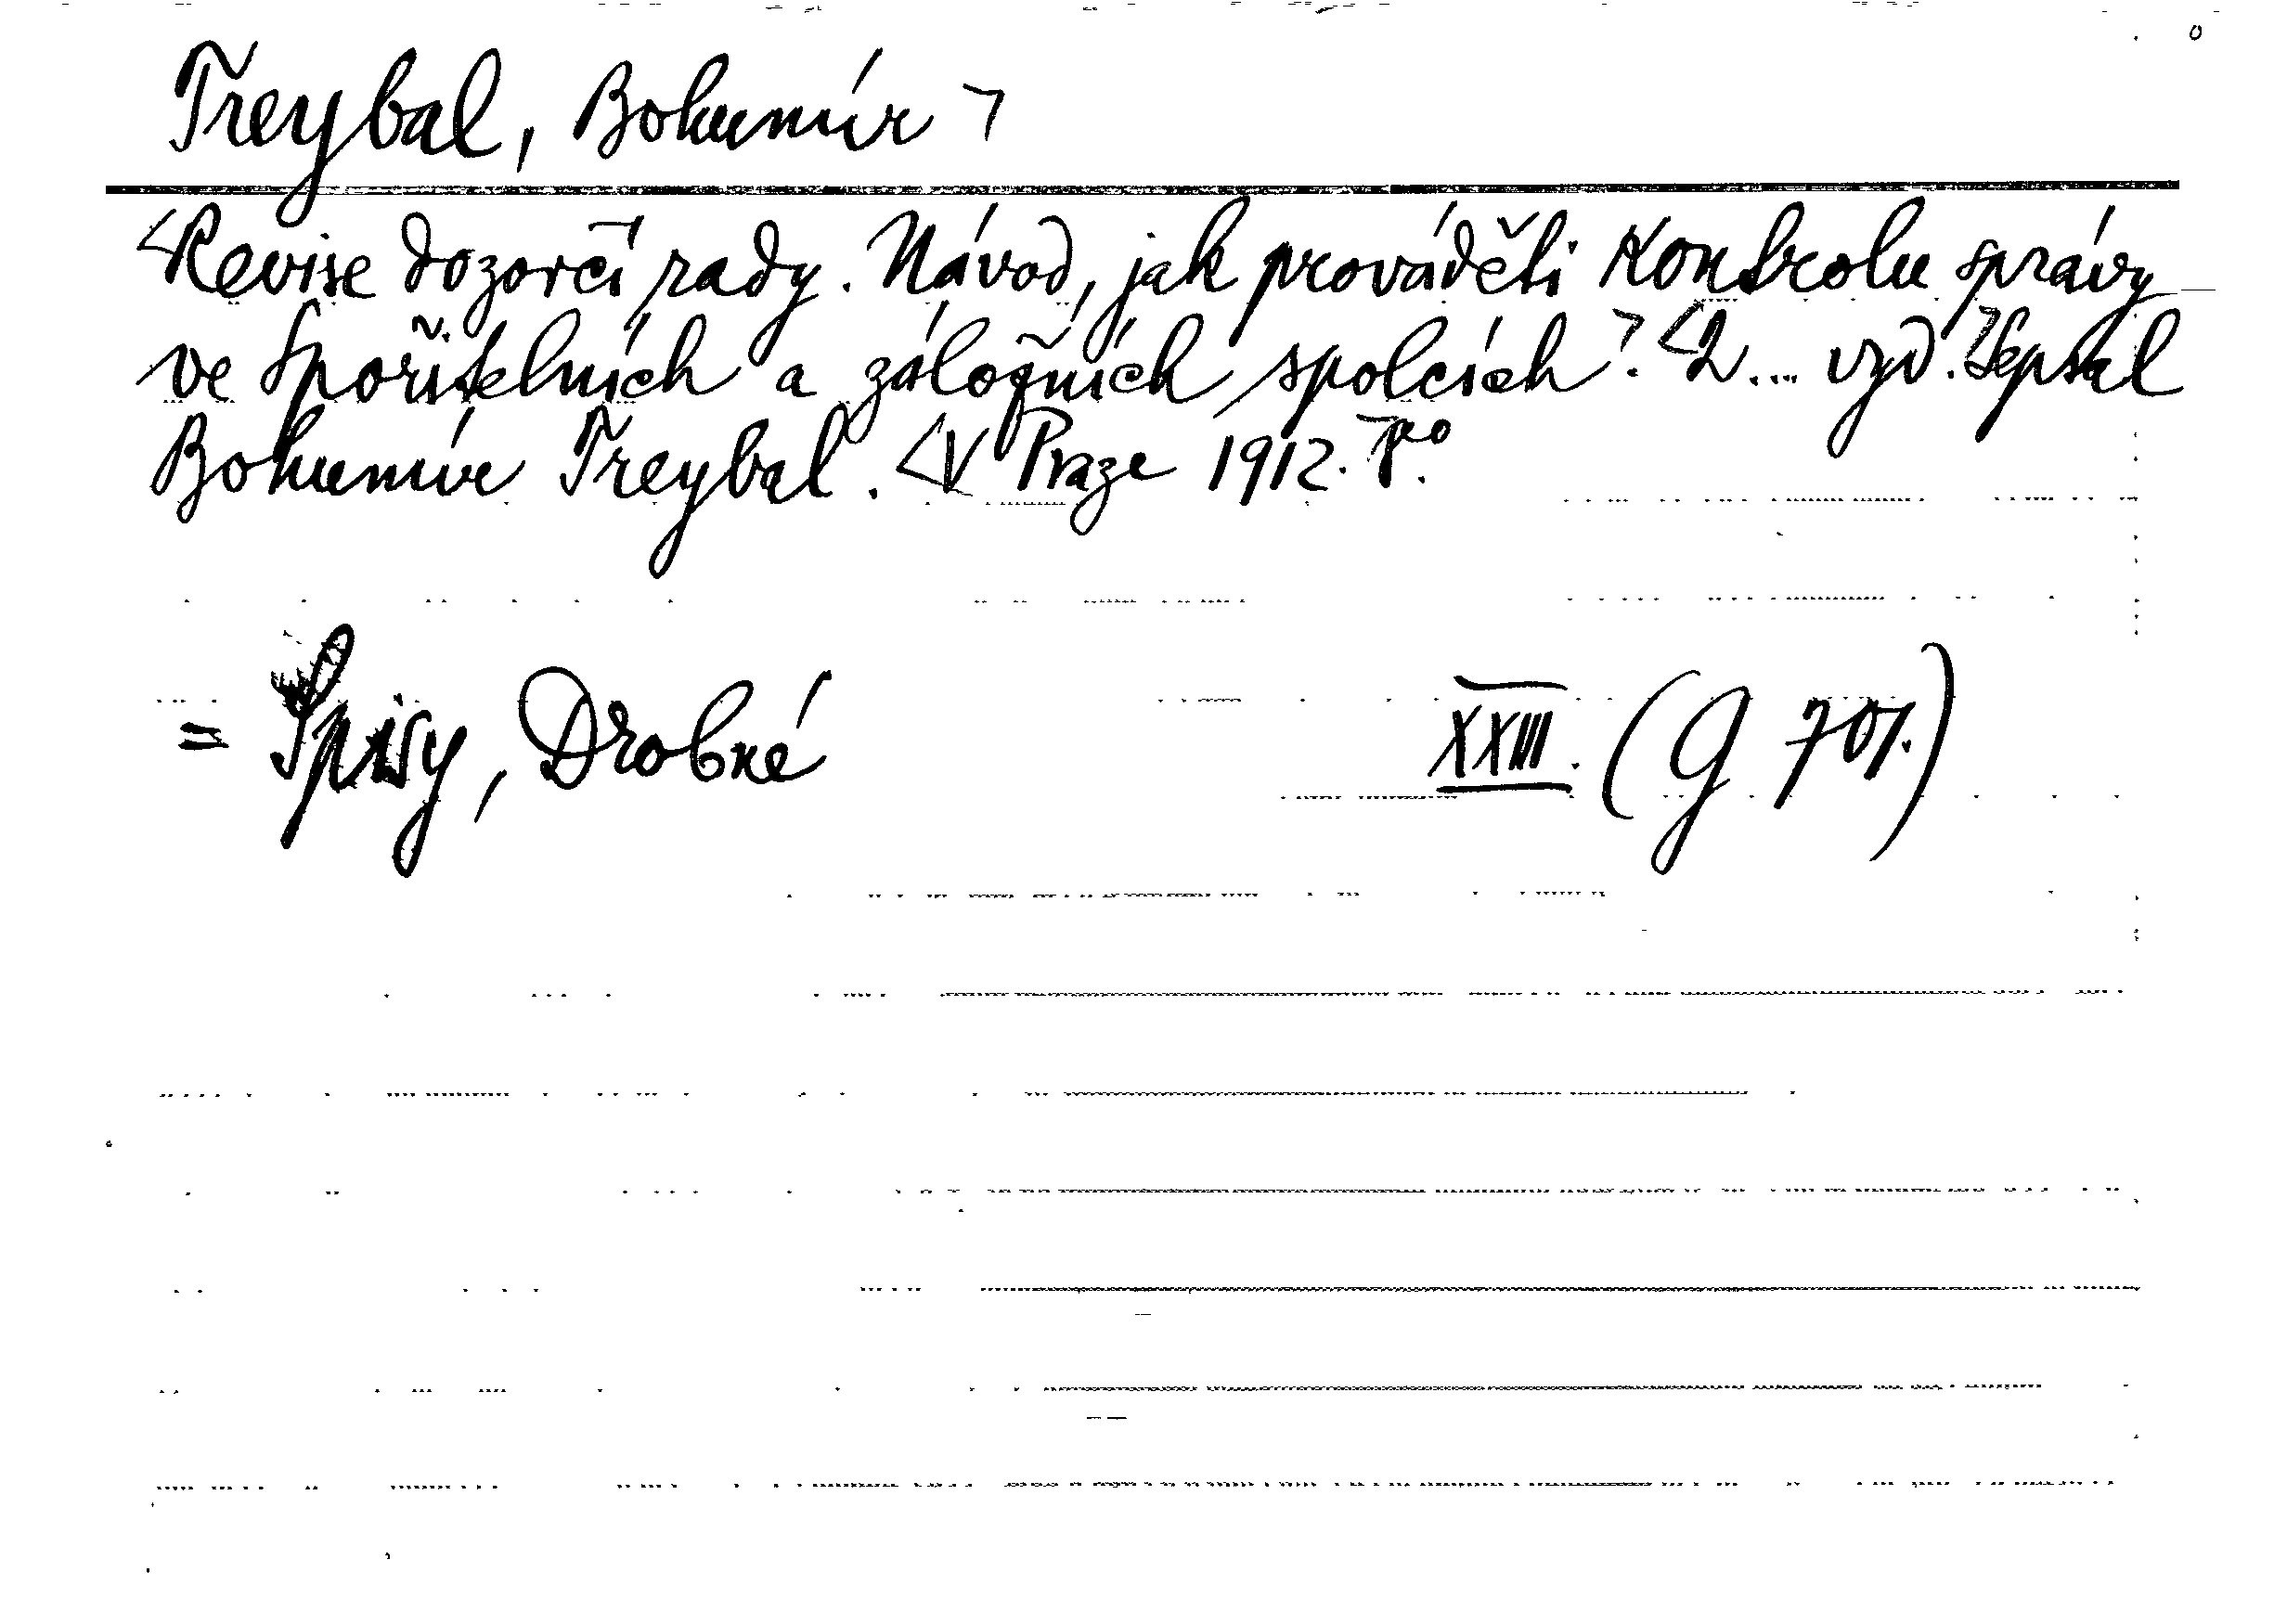 Treybal, Bohumír
Revise dozorčí rady. Návod, jak prováděti kontrolu správy
ve spořitelních a záložních spolcích. 2... vyd. Sepsal
Bohumír Treybal. V Praze 1912. 8°.
= Spisy, Drobné XXIII. (G 701.)